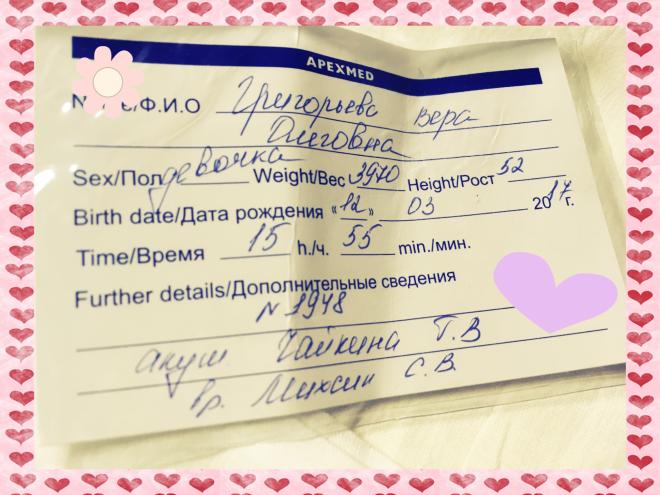 APEXMED
/Ф.И.О Григорьева Вера
Олеговна
Sex/Пол девочка Weight/Вес 3970 Height/Рост 52
Birth date/Дата рождения «12» 03 2017 г.
Time/Время 15 h./ч. 55 min./мин.
Further details/Дополнительные сведения
N 1948
акуш Чайкина Т.В
вр. С.В.